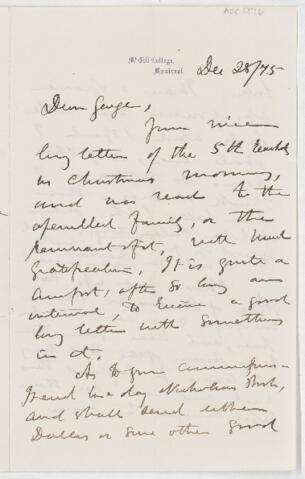 ACC 1776
McGill College,
Montreal
Dec 28/75
Dear George,
Your nice
long letter of the 5th reached
us Christmas morning,
and was read to the
assembled family, or the
remnant of it, with much
gratification. It is quite a
comfort, after so long an
interval, to receive a good
long letter with something
in it.
As to your
I read to day Nicholson
and shall send either
Dallas or some other good